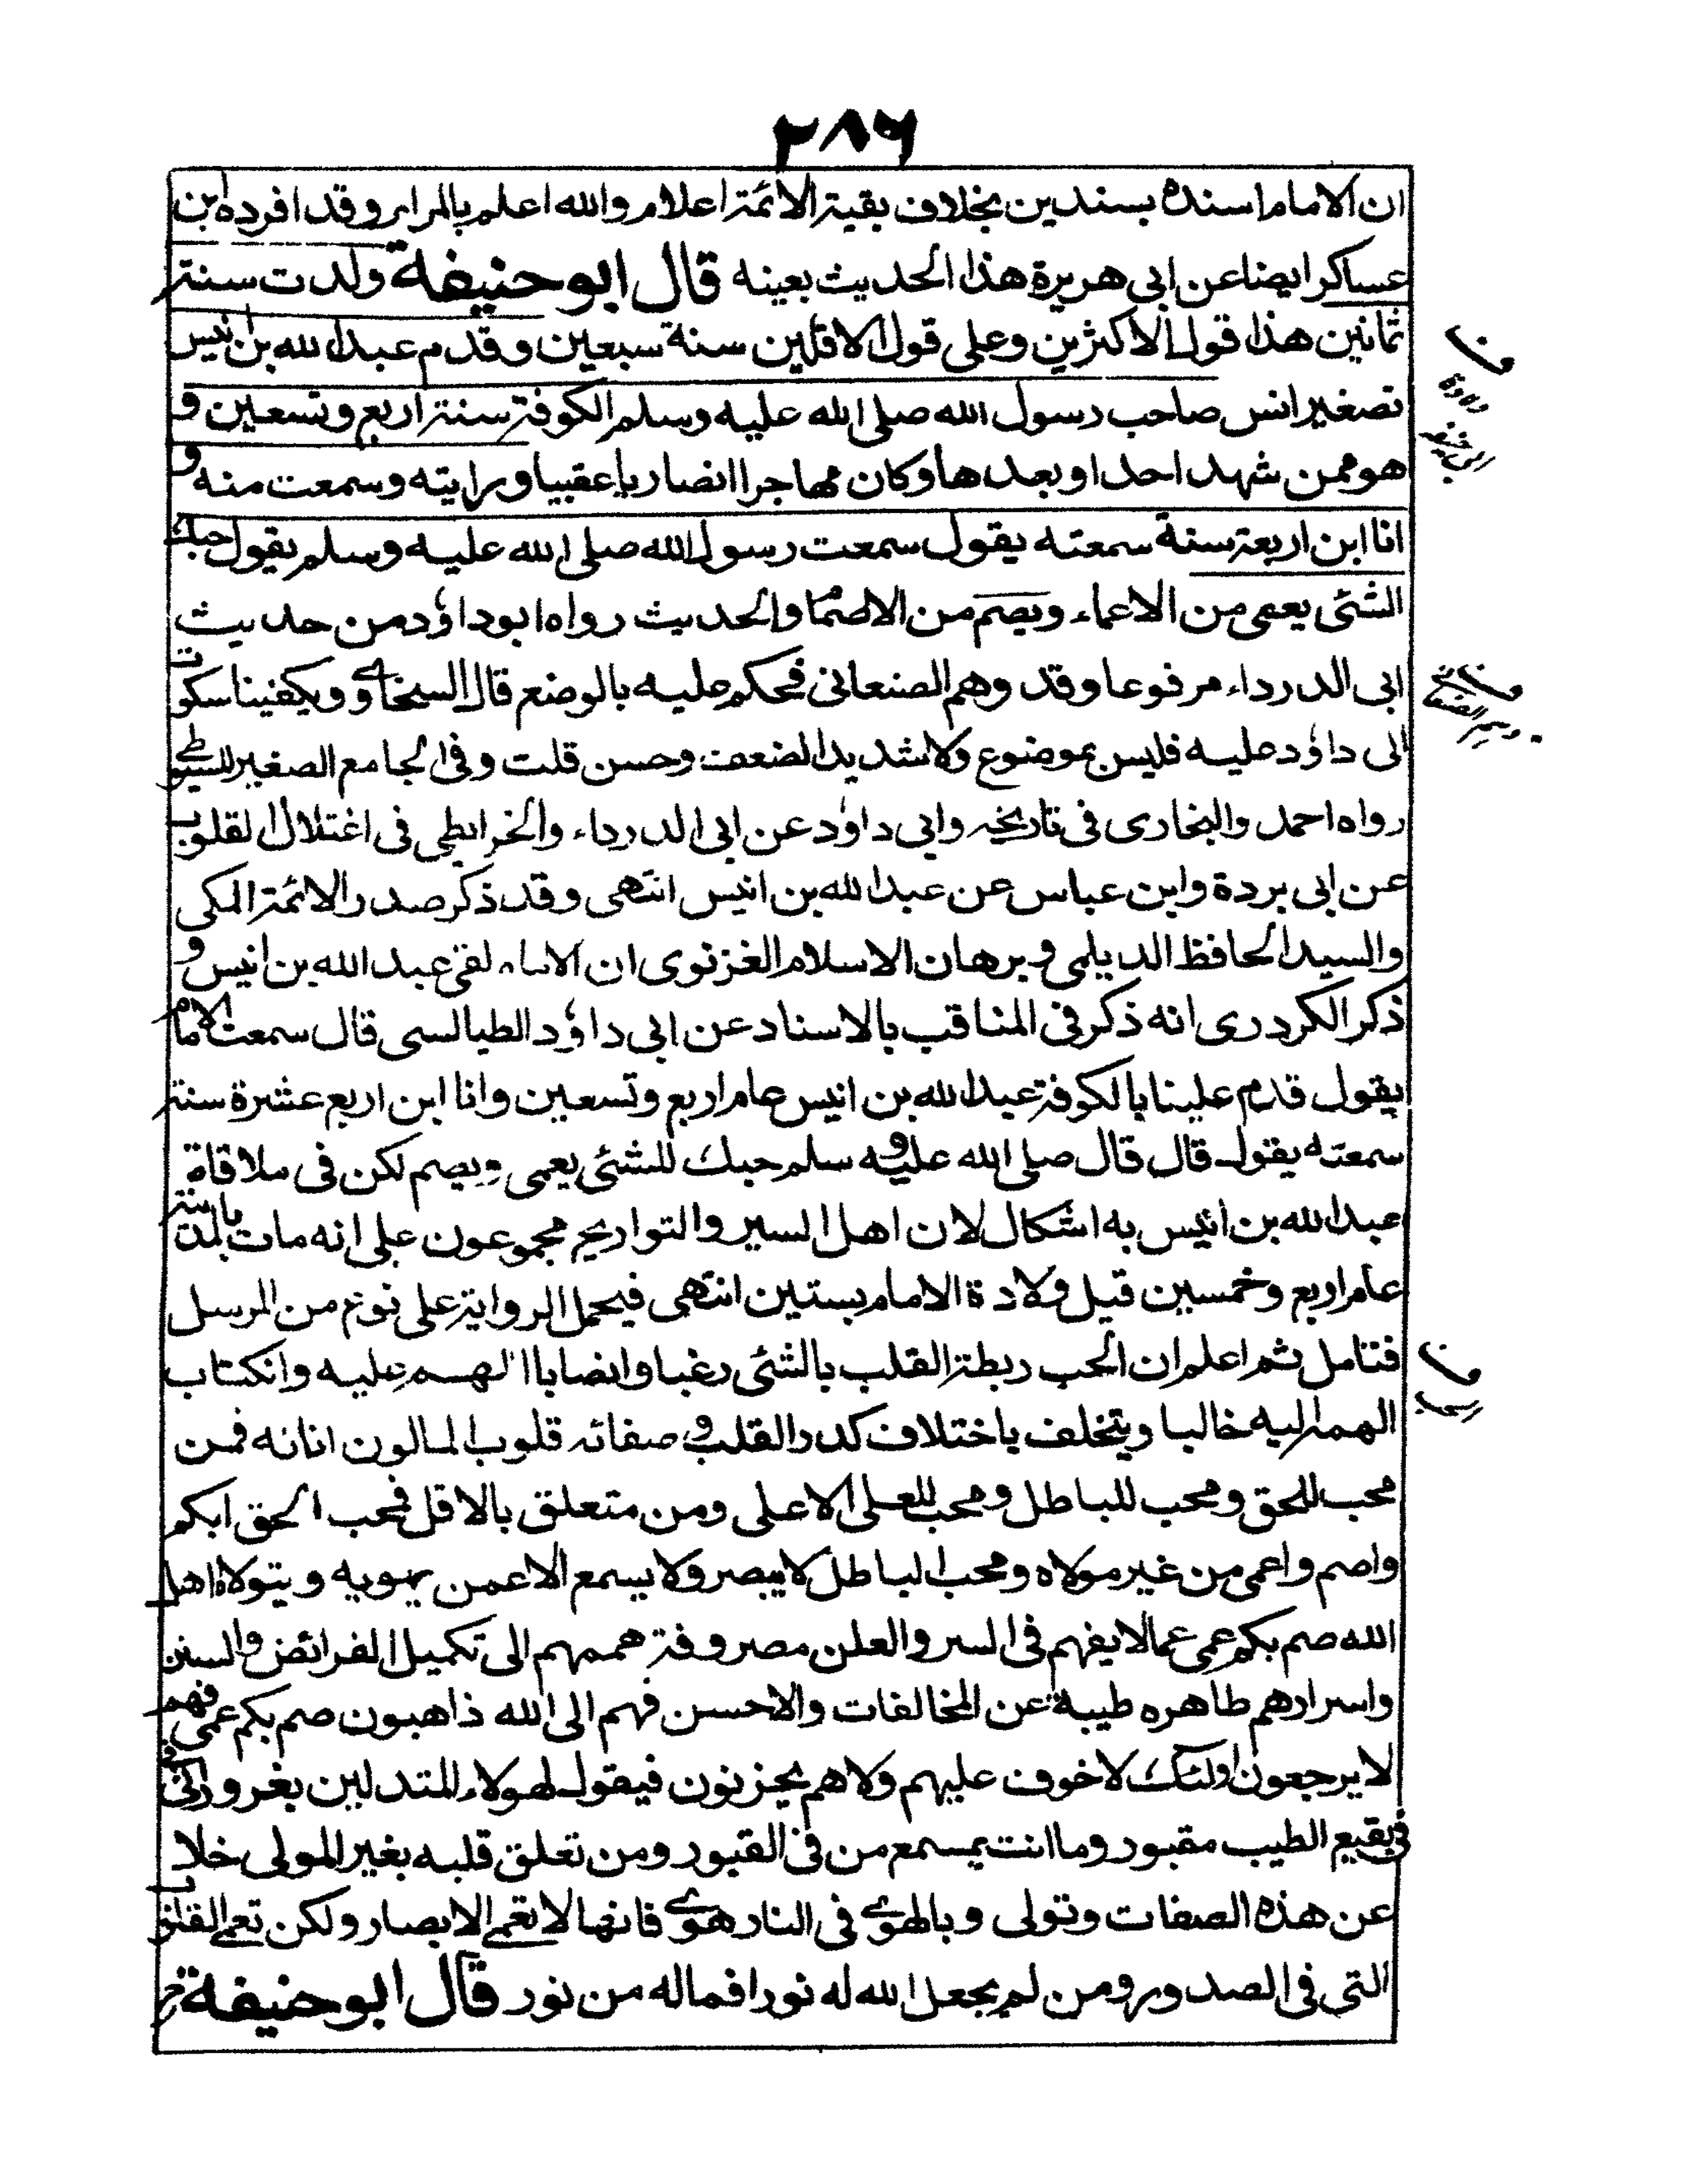 ٢٨٦
ان الامام اسنده بسندين بخلاف بقية الائمة اعلام والله اعلم بالمرام وقد افرده ابن
عساكر ايضا عن ابى هريرة هذا الحديث بعينه قال ابو حنيفة ولدت سنة
ثمانين هذا قول الاكثرين وعلى قول الاقلين سنة سبعين وقدم عبد الله بن انيس
تصغير انس صاحب رسول الله صلى الله عليه وسلم الكوفة سنة اربع وتسعين و
هو ممن شهد احدا وبعدها وكان مهاجرا انصاريا عقبيا ورايته وسمعت منه و
انا ابن اربعة سنة سمعته يقول سمعت رسول الله صلى الله عليه وسلم يقول حبك
الشئ يعمى من الاعماء ويصم من الاصما والحديث رواه ابو داؤد من حديث
ابى الدرداء مرفوعا وقد وهم الصنعانى فحكم عليه بالوضع قال السخاوى ويكفينا سكوت
ابى داؤد عليه فليس بموضوع ولا شديد الضعف وحسن قلت وفى الجامع الصغير للسيوطى
رواه احمد والبخارى فى تاريخه وابى داؤد عن ابى الدرداء والخرائطى فى اغتلال القلوب
عن ابى بردة وابن عباس عن عبد الله بن انيس انتهى وقد ذكر صدر الائمة المكى
والسيد الحافظ الديلمى و برهان الاسلام الغزنوى ان الامام لقى عبد الله بن انيس و
ذكر الكردرى انه ذكر فى المناقب بالاسناد عن ابى داؤد الطيالسى قال سمعت الامام
يقول قدم علينا بالكوفة عبد الله بن انيس عام اربع وتسعين وانا ابن اربع عشرة سنة
سمعته يقول قال قال صلى الله عليه و سلم حبك للشئ يعمى ويصم لكن فى ملاقاة
عبد الله بن انيس به اشكال لان اهل السير والتواريخ مجموعون على انه مات بالمدينة
عام اربع وخمسين قبل ولادة الامام بستين انتهى فيحمل الرواية على نوع من المرسل
فتامل ثم اعلم ان الحب ربطة القلب بالشئ رغبا وانضابا الهم عليه وانكتاب
الهم اليه غالبا ويتخلف باختلاف كدر القلب و صفائه قلوب المالون انانه فمن
محب للحق ومحب للباطل ومحب للعلى الاعلى ومن متعلق بالاقل فمحب الحق ابكم
واصم واعمى من غير مولاه ومحب الباطل لا يبصر ولا يسمع الا عمن يهويه ويتولاه اهل
الله صم بكم عمى عما لا يفهم فى السر والعلن مصروفة هممهم الى تكميل الفرائض والسنن
واسرارهم طاهره طيبة عن المخالفات والاحسن فهم الى الله ذاهبون صم بكم عمى فهم
لا يرجعون اولئك لا خوف عليهم ولا هم يحزنون فيقول لهولاء المتدلين بغرور
فى بقيع الطيب مقبور وما انت بمسمع من فى القبور ومن تعلق قلبه بغير المولى خلا
عن هذه الصفات وتولى وبالهوى فى النار هوى فانها لا تعمى الابصار ولكن تعمى القلوب
التى فى الصدور ومن لم يجعل الله له نورا فما له من نور قال ابو حنيفة